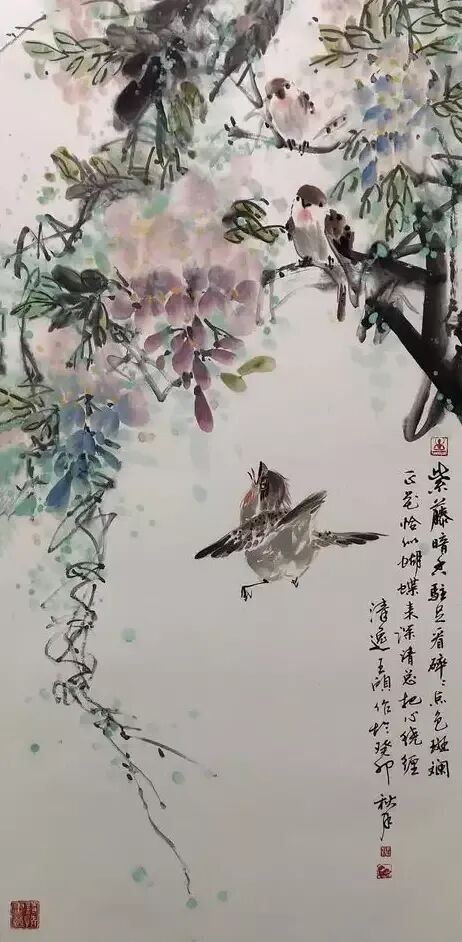 紫藤暗香駐足看碎〻点色斑斓
正花恰似蝴蝶来深情总把心绕缠
清逸王作於癸卯秋月